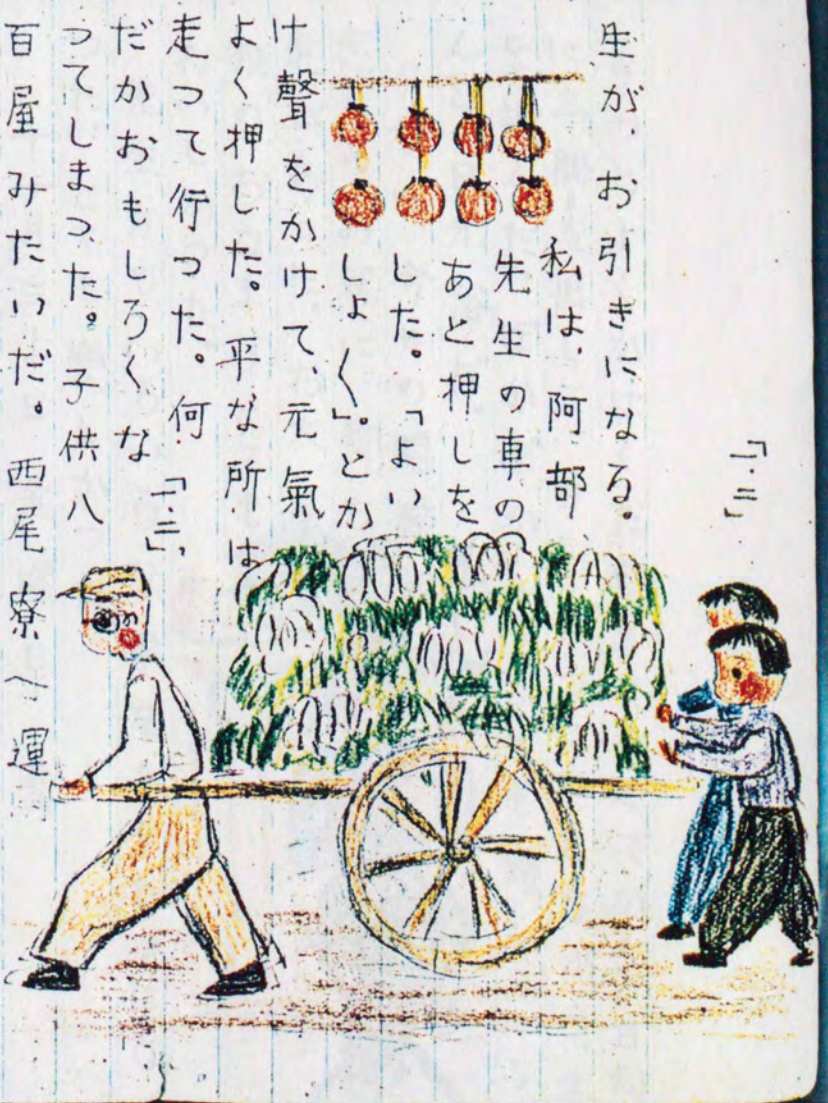 生が、お引きになる。
私は、阿部
先生の車の
あと押しを
した。「よい
しょく」。とか
け聲をかけて、元氣
よく押した。平な所は
走つて行つた。何
だかおもしろくな
つてしまつた。子供八
百屋みたいだ。西尾寮へ運
「一、二」
「一、二」、